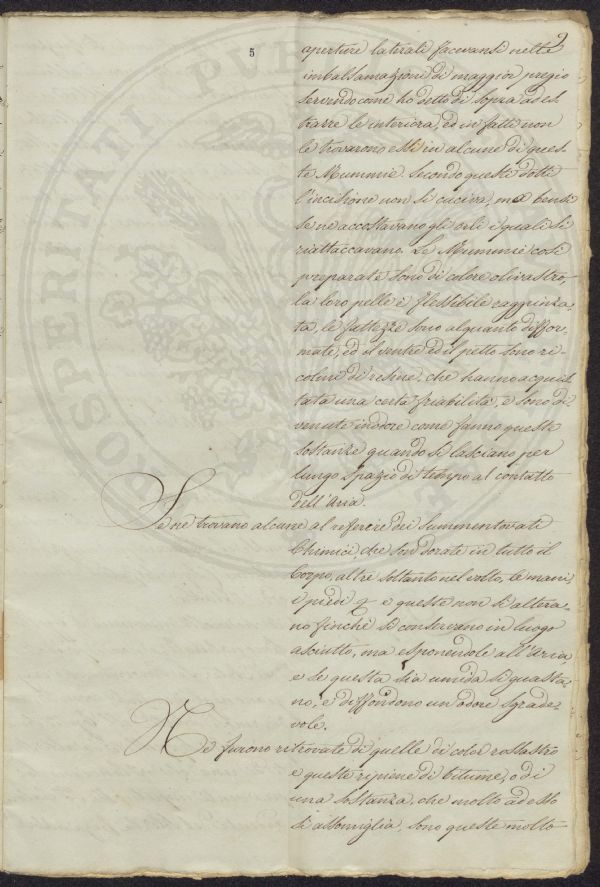 5
9
aperture laterali facevansi nelle
imbalsamazioni di maggior pregio
servendo come ho detto di sopra ad es,
trarre le interiora, ed in fatti non
le trovarono essi in alcune di ques,
te Mummie. Secondo questi dotti
l'incisione non si cuciva, ma bensi
se ne accostavano gli orli i quali si
riattaccavano. Le Mummie così
preparate sono di colore olivastro,
la loro pelle è flessibile raggrinza,
ta, le fattezze sono alquanto diffor,
mate, ed il ventre ed il petto sono ri-
colmi di resine, che hanno acquis,
tata una certa friabilità, e sono di,
venute inodore come fanno queste
sostanze quando si lasciano per
lungo spazio di tempo al contatto
dell'Aria.
Se ne trovano alcune al referire dei summentovati
Chimici, che son dorate in tutto il
Corpo, altre soltanto nel volto, le mani
i piedi e queste non si altera,
no finchè si conservano in luogo
asciutto, ma esponendole all'Aria,
e se questa sia umida si guasta,
no, e diffondono un odore sgrade,
vole.
Ne furono ritrovate di quelle di color rossastro
e queste ripiene di bitume, o di
una sostanza, che molto ad esso
si assomiglia, sono queste molto
PROSPERITATI PUBLICAE